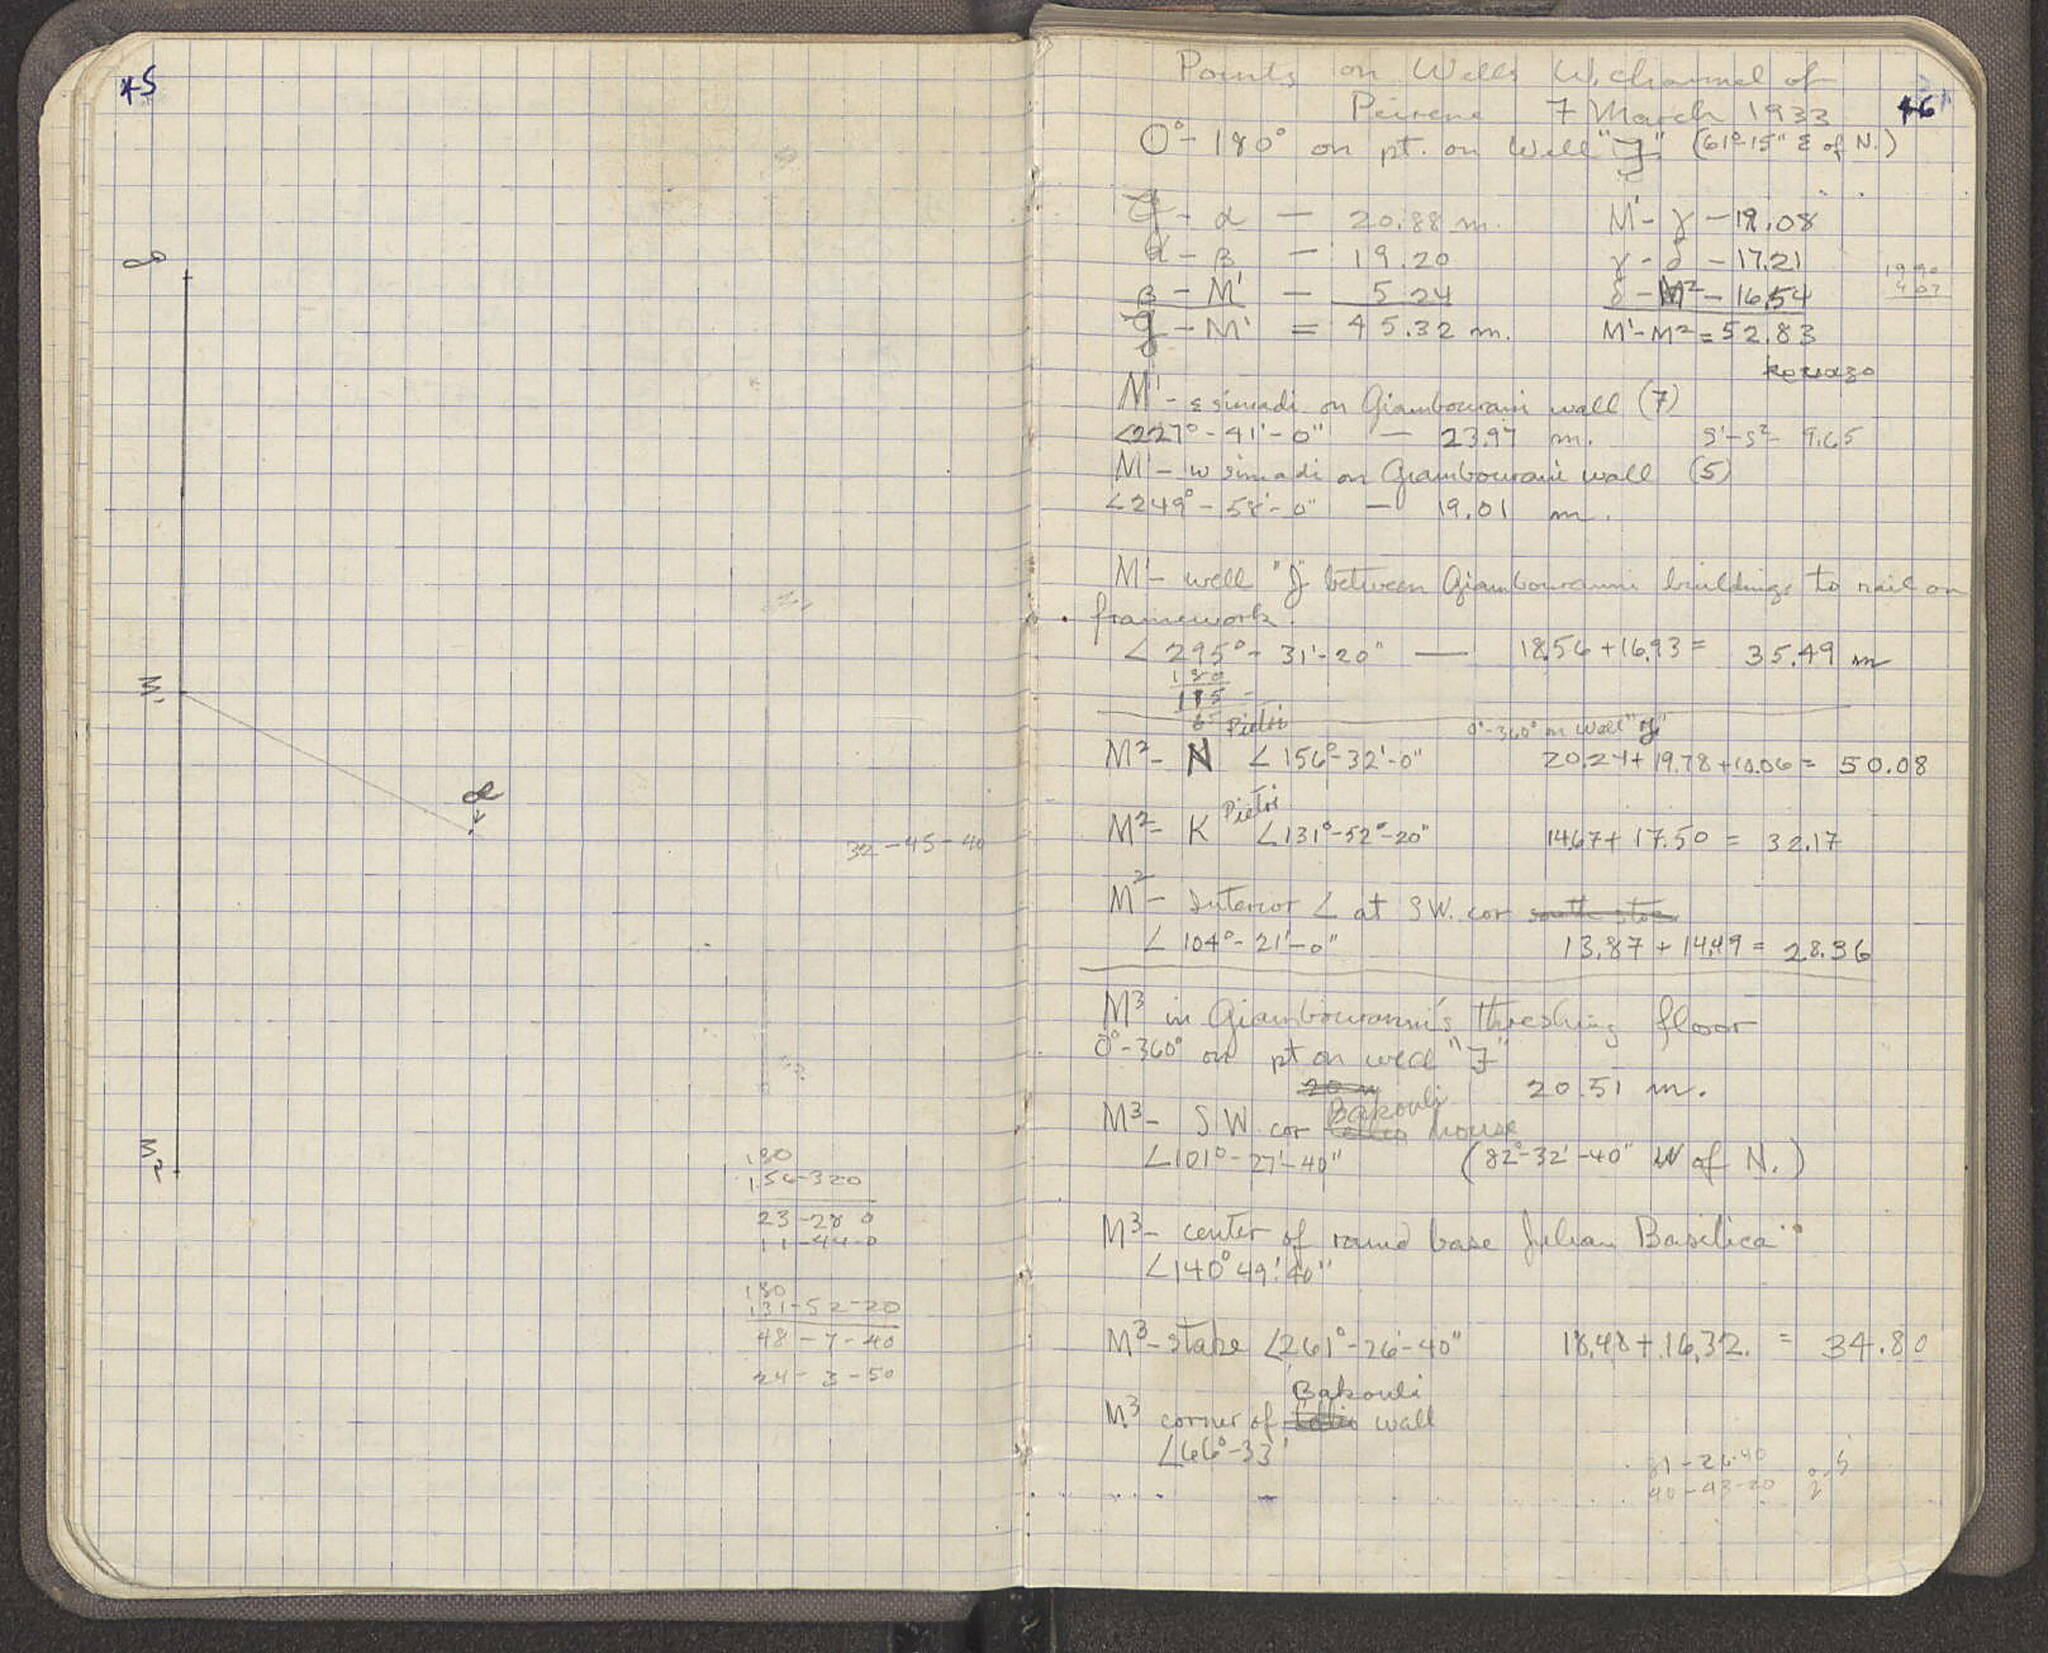 45
M₁
M₂
32-45-40
180
156-32 0
23-28 0
11-44-0
180
131-52-20
48-7-40
24-3-50
46
Points on Wells W. channel of
Peirene 7 March 1933
0°-180° on pt. on Well "J" (61°-15" E of N.)
J - α — 20.88 m.
α - β — 19.20
β - M' — 5 24
J - M' = 45.32 m.
M' - γ - 19.08
γ - δ - 17.21
δ - M² - 16.54
M' - M² = 52.83
M' - E simadi on Giambourani wall (7)
∠227°-41'-0" — 23.97 m. S'-S²- 9.65
M' - W simadi on Giambourani wall (5)
∠249°-58'-0" — 19.01 m.
M' - well "J" between Giambouranni buildings to nail on
framework.
∠295°-31'-20" — 18.56 + 16.93 = 35.49 m
180
115
0°-360° on Well "J"
M² - N Pietri ∠156°-32'-0" 20.24 + 19.78 + 10.06 = 50.08
M² - K Pietri ∠131°-52'-20" 14.67 + 17.50 = 32.17
M² - Interior ∠ at SW. cor south stoa
∠104°-21'-0" 13.87 + 14.49 = 28.36
M³ in Giambouranni's threshing floor
0°-360° on pt on well "J"
20.51 m.
M³ - SW cor Bakouli house
∠101°-27'-40" (82°-32'-40" W of N.)
M³ - center of round base Julian Basilica
∠140°49'40"
M³ - stake ∠261°-26'-40" 18.48 + 16.32 = 34.80
M³ corner of Bakouli wall
∠66°-33'
81-26-40
40-43-20